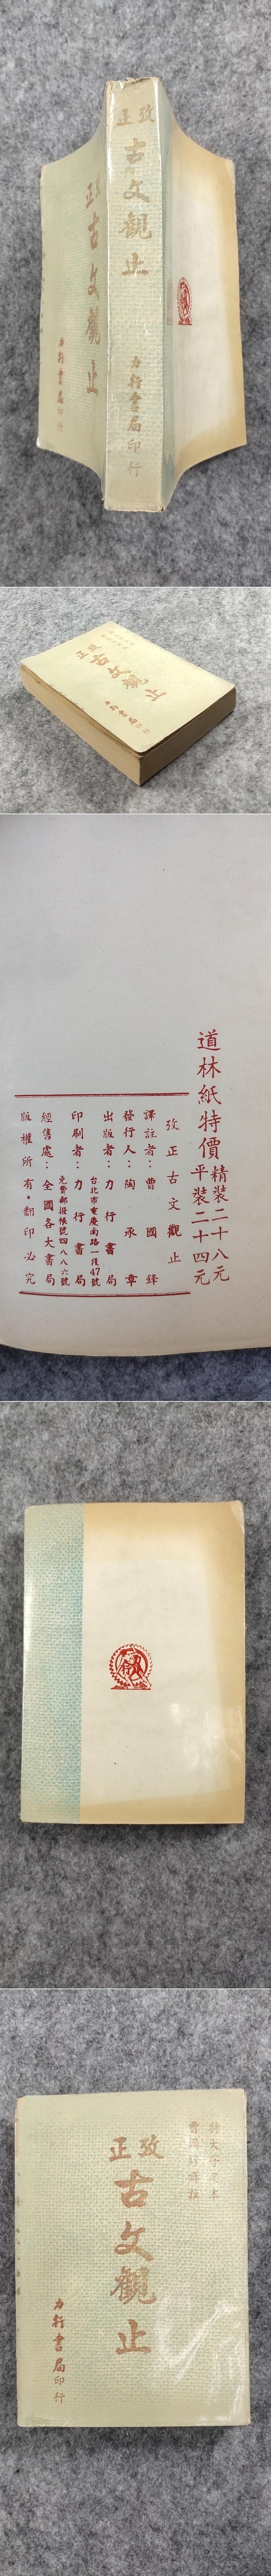 攷正
古文觀止
力行書局印行
正
古文觀止
力行書局印行
攷正
古文觀止
道林紙特價
精裝二十八元
平裝二十四元
攷正古文觀止
譯註者：曹國鋒
發行人：陶承章
出版者：力行書局
台北市重慶南路一段47號
印刷者：力行書局
免費郵撥帳號四八八六號
經售處：全國各大書局
版權所有・翻印必究
攷正
古文觀止
力行書局印行